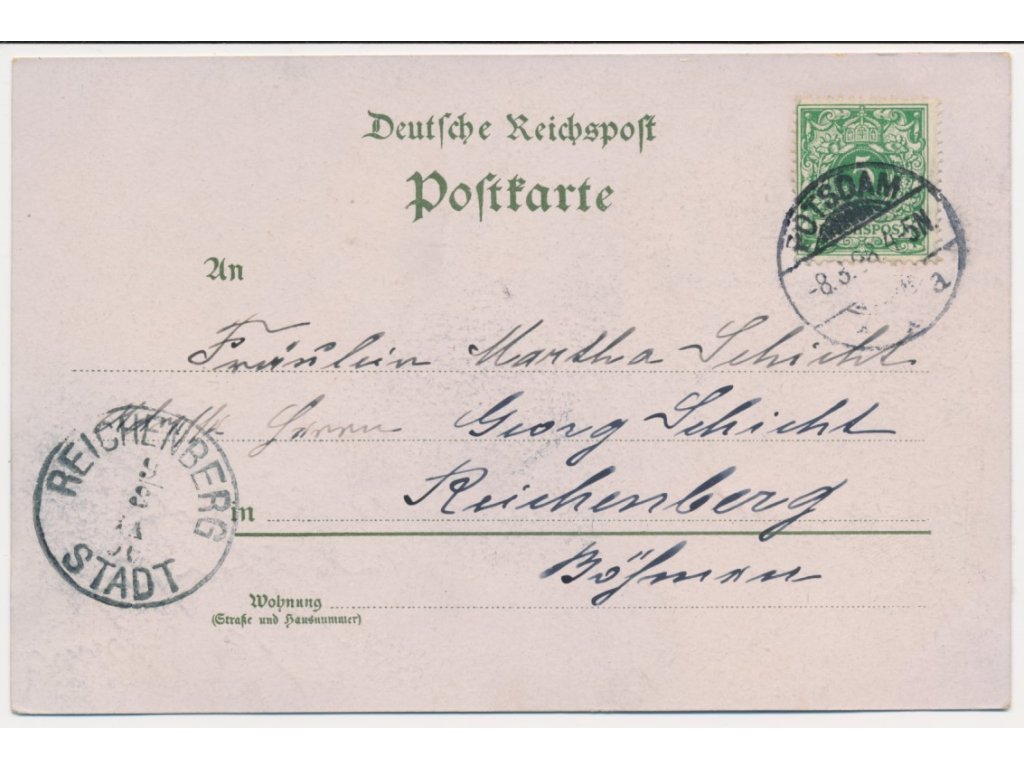 Deutsche Reichspost
Postkarte
5
REICHSPOST
POTSDAM
-8.3.98. 4-5N.
a
An
Fräulein Martha Schicht
Herrn Georg Schicht
REICHENBERG
STADT
in Reichenberg
Böhmen
Wohnung
(Straße und Hausnummer)